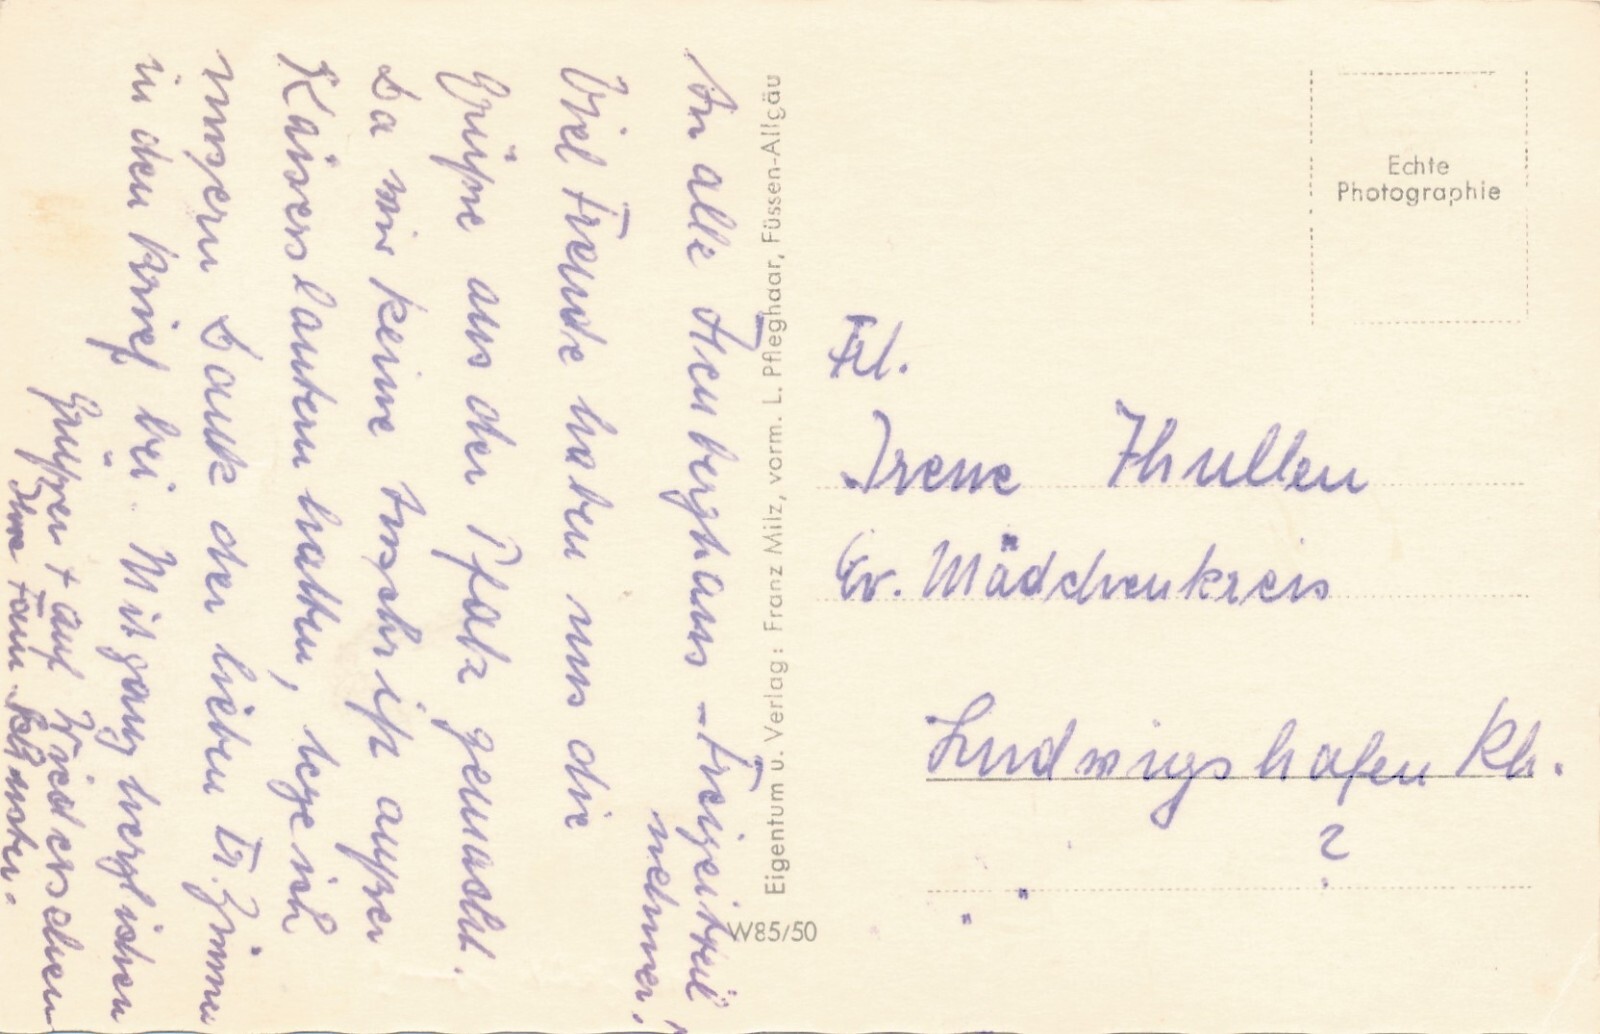 An alle Heuberghaus-Freizeitteil
nehmer!
Viel Freude haben uns die
Grüße aus der Pfalz gemacht.
Da wir keine Anschrift außer
Kaiserslautern hatten, lege ich
unsern Dank der lieben Fr. Zimmer
in den Brief bei. Mit ganz herzlichen
Grüßen + auf Wiedersehen
Ihre Fam.
Eigentum u. Verlag: Franz Milz, vorm. L. Pfleghaar, Füssen-Allgäu
W85/50
Echte
Photographie
Frl.
Irene Thullen
Ev. Mädchenkreis
Ludwigshafen Rh.
?